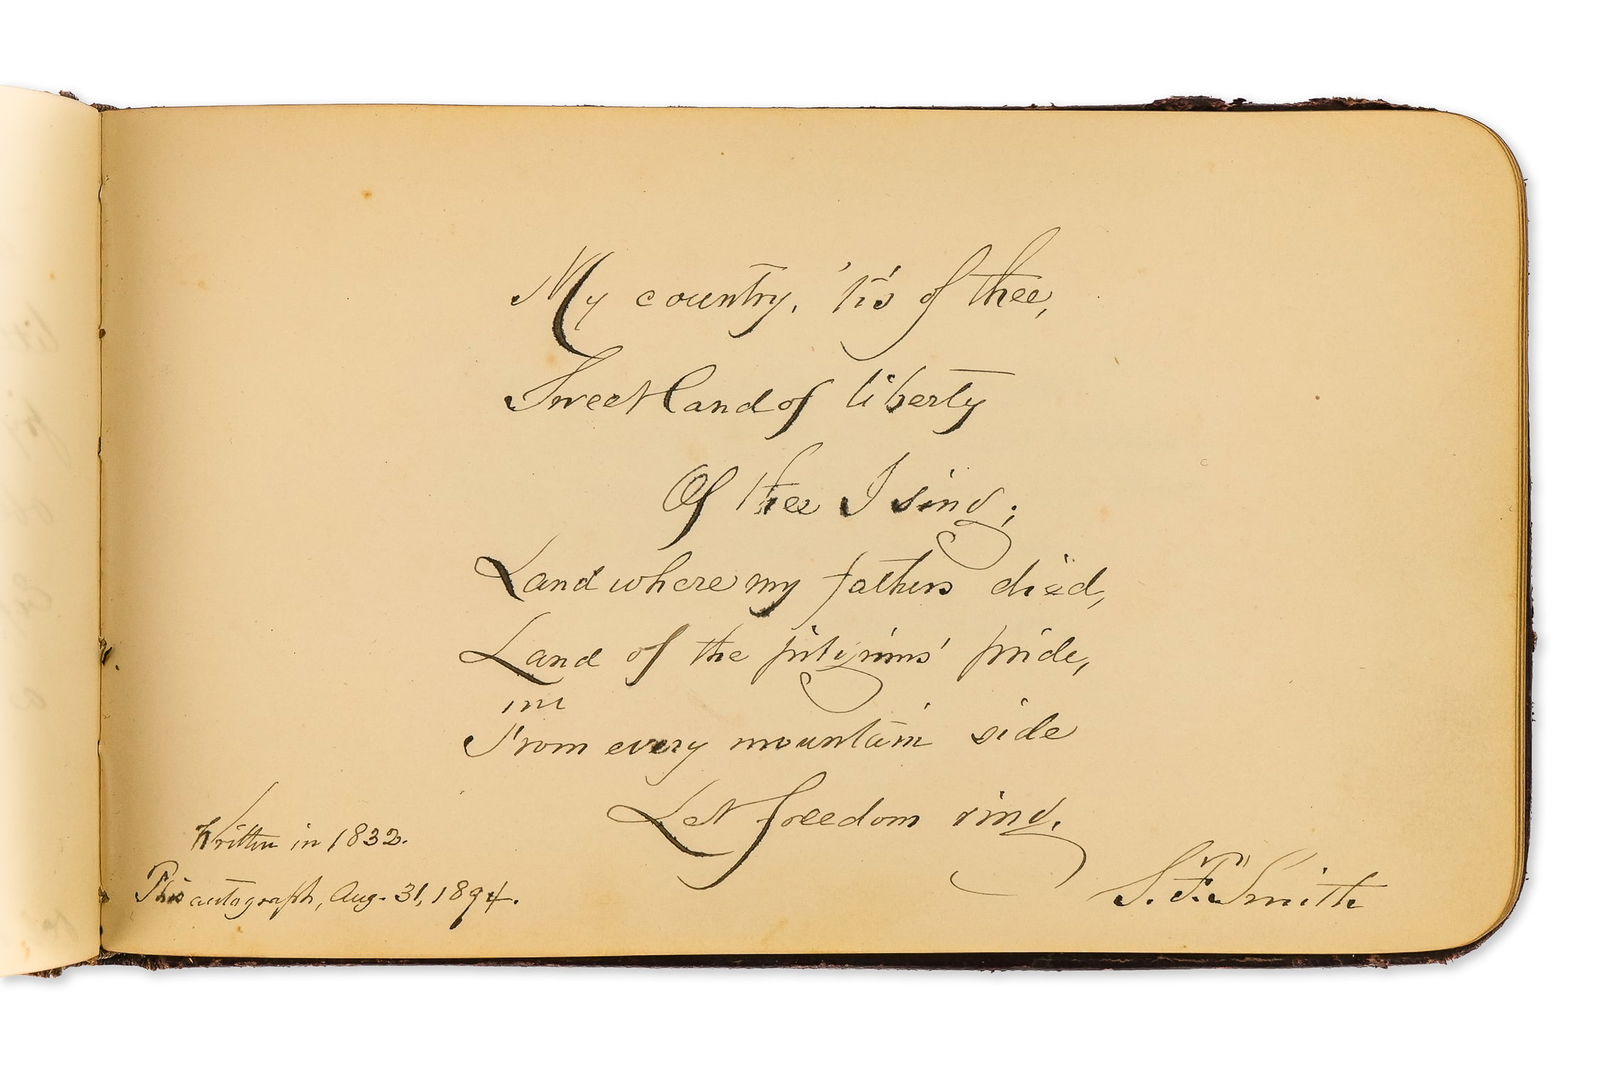 My country, 'tis of thee,
Sweet land of liberty
Of thee I sing;
Land where my fathers died,
Land of the pilgrims' pride,
From every mountain side
Let freedom ring.
Written in 1832.
This autograph, Aug. 31, 1894.
S. F. Smith